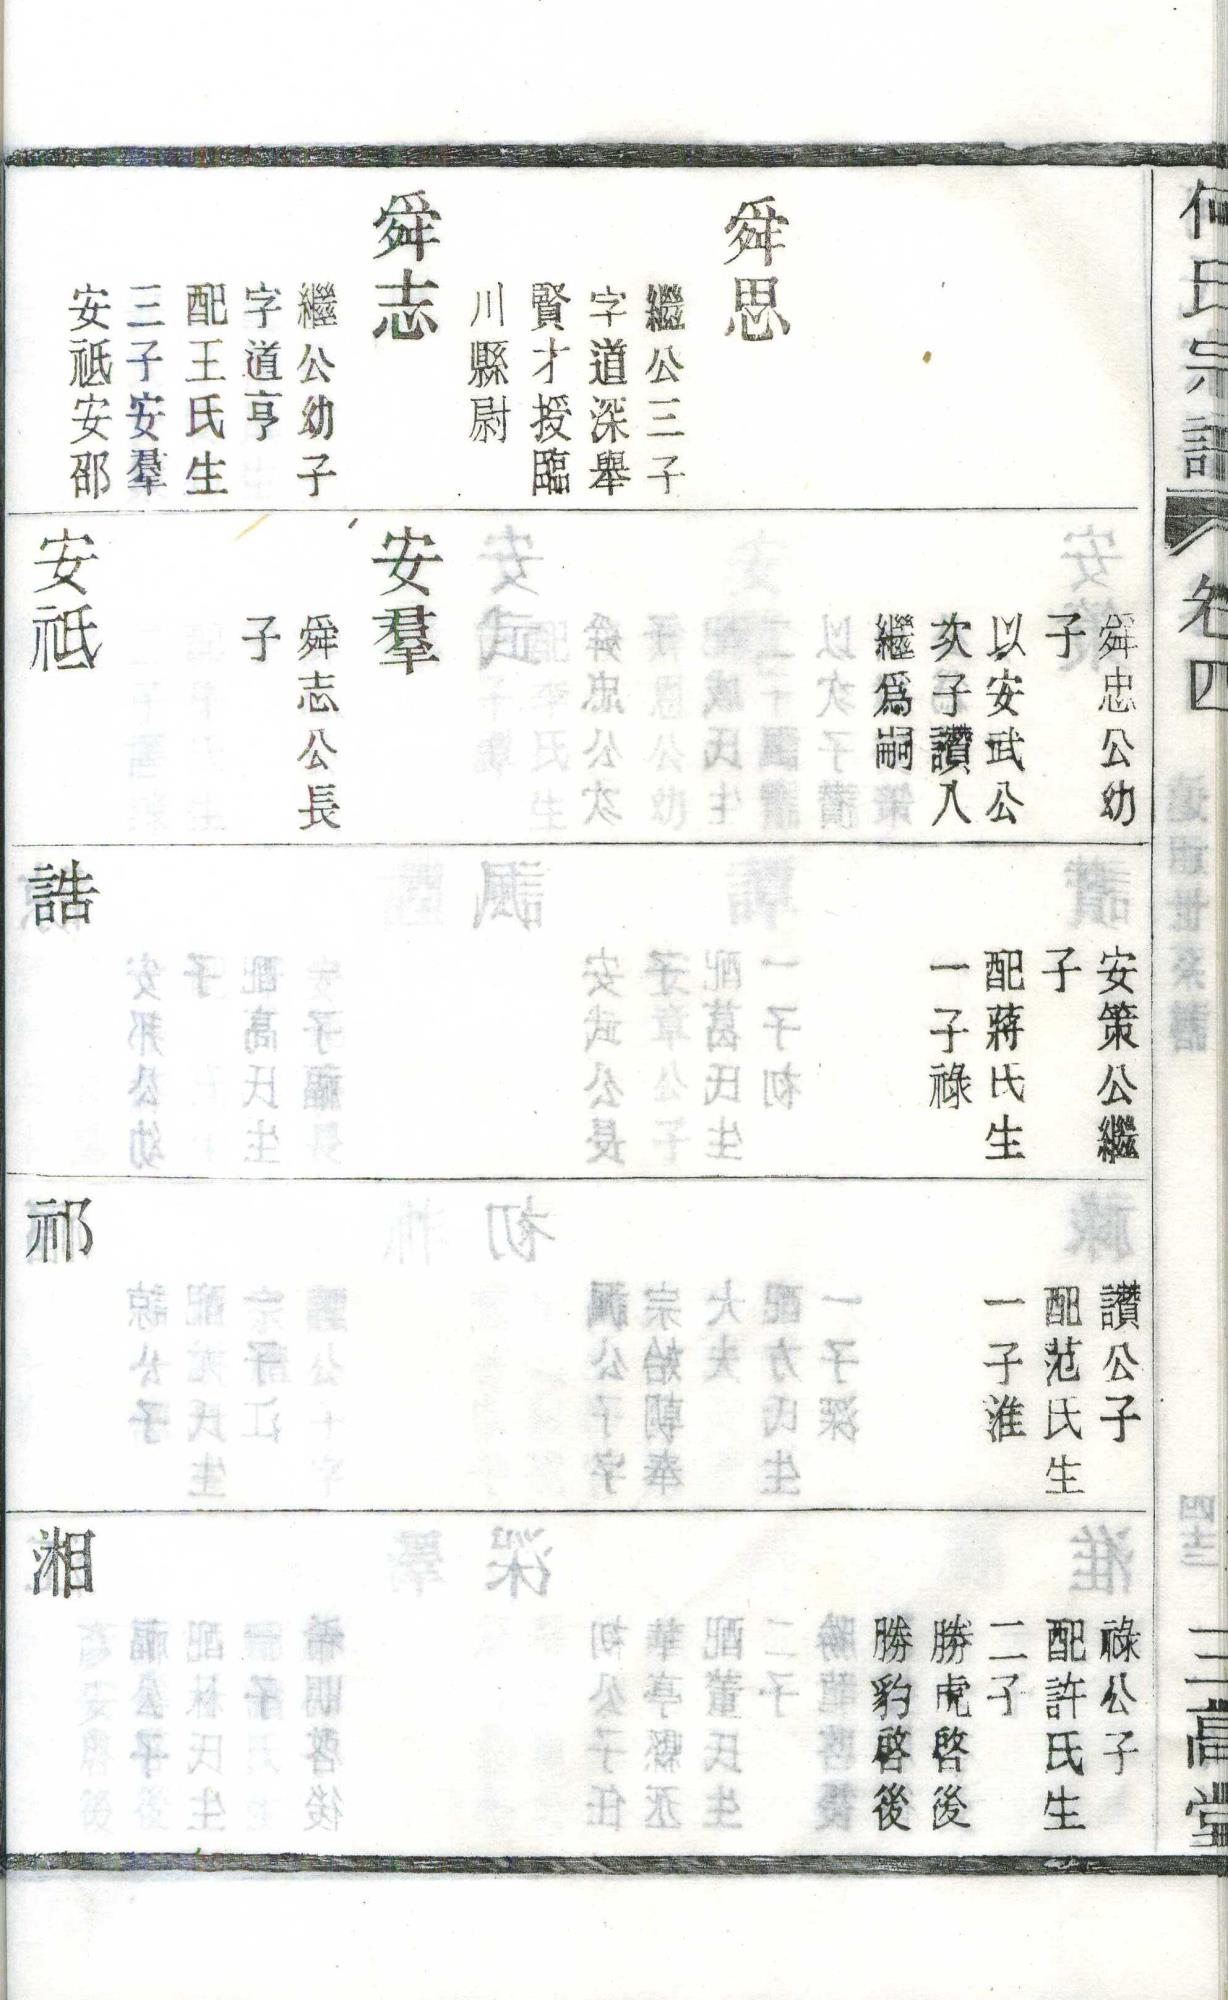 何氏宗譜
卷四
三高堂
舜思
繼公三子
字道深舉
賢才授臨
川縣尉
舜志
繼公幼子
字道亨
配王氏生
三子安羣
安祗安邵
舜忠公幼
子
以安武公
次子讚入
繼爲嗣
安羣
舜志公長
子
安祗
安策公繼
子
配蔣氏生
一子祿
誥
讚公子
配范氏生
一子淮
祁
祿公子
配許氏生
二子
勝虎啓後
勝豹啓後
湘